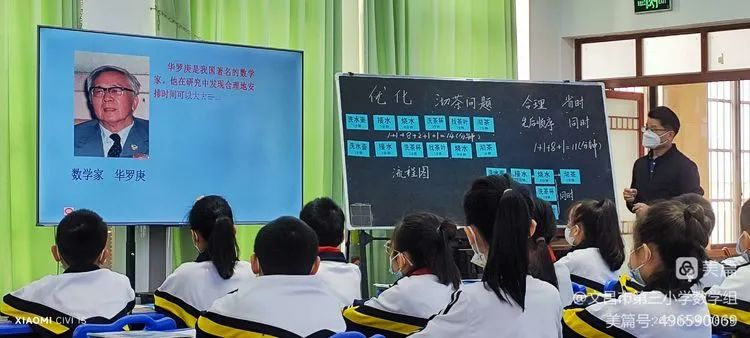 华罗庚是我国著名的数学
家，他在研究中发现合理地安
排时间可以大大
数学家 华罗庚
优化 沏茶问题 合理 省时
先后顺序 同时
洗水壶 接水 烧水 洗茶杯 找茶叶 沏茶
1+1+8+2+1+1=14(分钟)
洗水壶 接水 烧水 洗茶杯 找茶叶 沏茶
1+1+8+1=11(分钟)
流程图
洗水壶 接水 烧水 沏茶
洗茶杯 同时
找茶叶
美篇
@文昌市第三小学数学组
美篇号:496590069
XIAOMI CIVI 1S